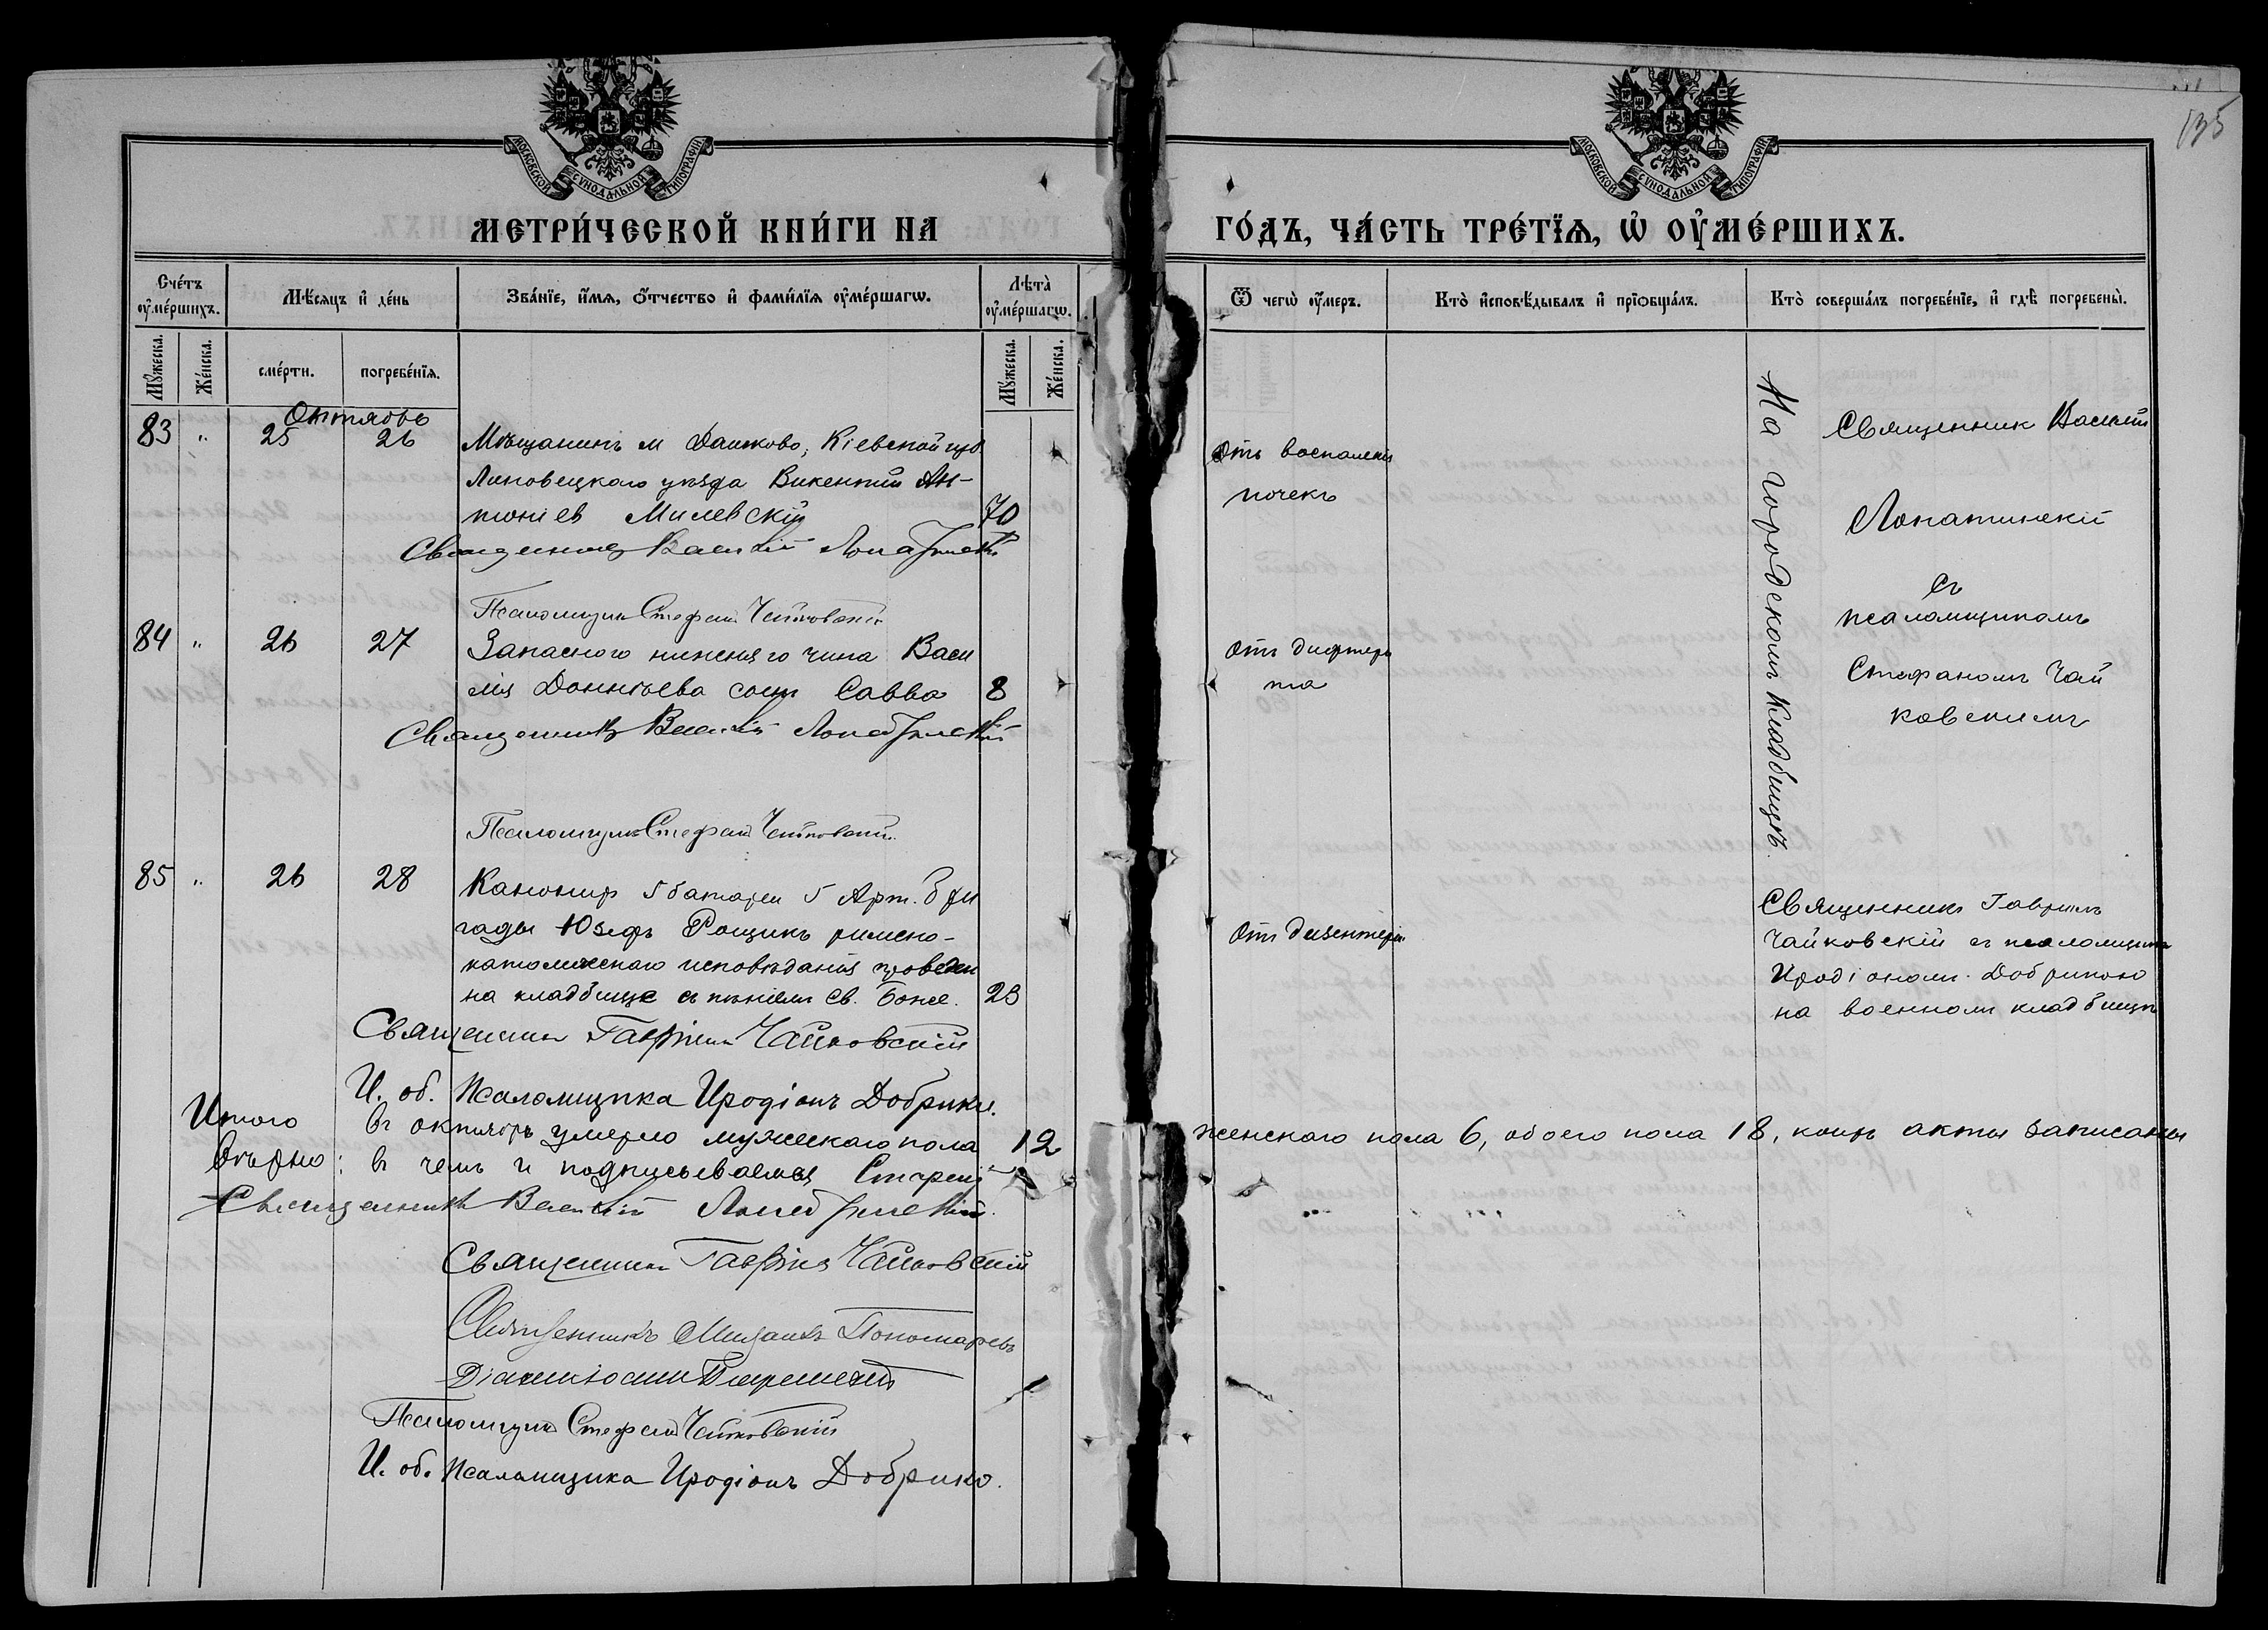 135
МОСКОВСКОЙ СѴНОДАЛЬНОЙ ТИПОГРАФІИ
МОСКОВСКОЙ СѴНОДАЛЬНОЙ ТИПОГРАФІИ
МЕТРИ́ЧЕСКОЙ КНИ́ГИ НА
ГО́ДЪ, ЧА́СТЬ ТРЕ́ТЇѦ, Ѡ҆ ОУ҆МЕ́РШИХЪ.
Сче́тъ оу҆ме́ршихъ.
Мѣ́сяцъ и҆ де́нь
Зва́нїе, и҆́мя, ѻ҆́тчество и҆ фами́лїя оу҆ме́ршагѡ.
Лѣ́та̀ оу҆ме́ршагѡ.
Ѿ чегѡ̀ оу҆́меръ.
Кто̀ и҆сповѣ́дывалъ и҆ прїѡбща́лъ.
Кто̀ соверша́лъ погребе́нїе, и҆ гдѣ̀ погребены̀.
Му́жеска.
Же́нска.
сме́рти.
погребе́нїя.
Му́жеска.
Же́нска.
Октябрь
83 " 25 26 Мѣщанинъ м Дашково, Кіевской губ.
Липовецкаго уѣзда Викентій Ан-
тоніев Милевскій 70
Священникъ Василій Лопатинскій
Псаломщикъ Стефан Чайковскій
От воспаленія
почекъ
На городскомъ кладбищѣ.
Священник Василій
Лопатинскій
съ
псаломщикомъ
Стефаномъ Чай
ковскимъ
84 " 26 27 Запасного нижняго чина Васи
лія Доннтьева сынъ Савва 8
Священникъ Василій Лопатинскій
Псаломщикъ Стефан Чайковскій
Отъ дифтери
та
85 " 26 28 Канонир 5 батареи 5 Арт. бри
гады Юзефъ Рощикъ римско-
католическаго исповѣданія проведен
на кладбище съ пѣніемъ Св. Боже. 23
Священникъ Гавріилъ Чайковскій
И. об. Псаломщика Иродіонъ Добрико.
Отъ дизентеріи
Священникъ Гавріилъ
Чайковскій съ псаломщик
Иродіоном Добрикою
на военном кладбищѣ
Итого в октябрѣ умерло мужескаго пола 12 женскаго пола 6, обоего пола 18, коихъ акты записаны
вѣрно: в чемъ и подписываемся
Священникъ Василій Лопатинскій.
Священникъ Гавріилъ Чайковскій
Священникъ Михаилъ Пономаревъ
Псаломщикъ Стефан Чайковскій
И. об. Псаломщика Иродіонъ Добрико.